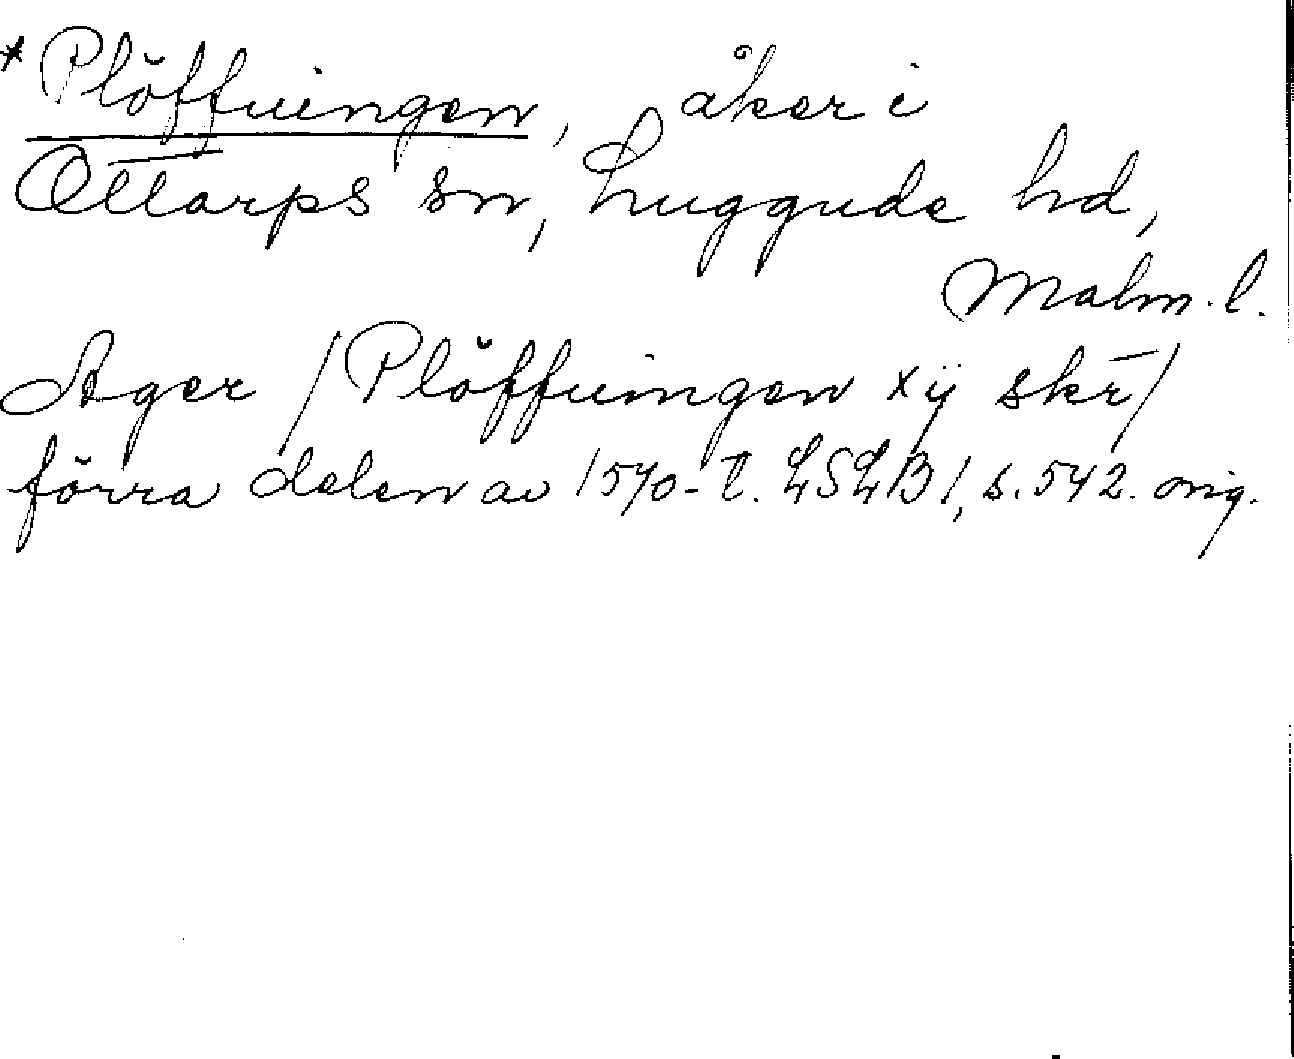 *Plöffuingen, åker i
Ottarps sn, Luggude hd,
Malm. l.
Ager / Plöffuingen xij skr̄ /
förra delen av 1570-t. LSLB1, s. 542. orig.